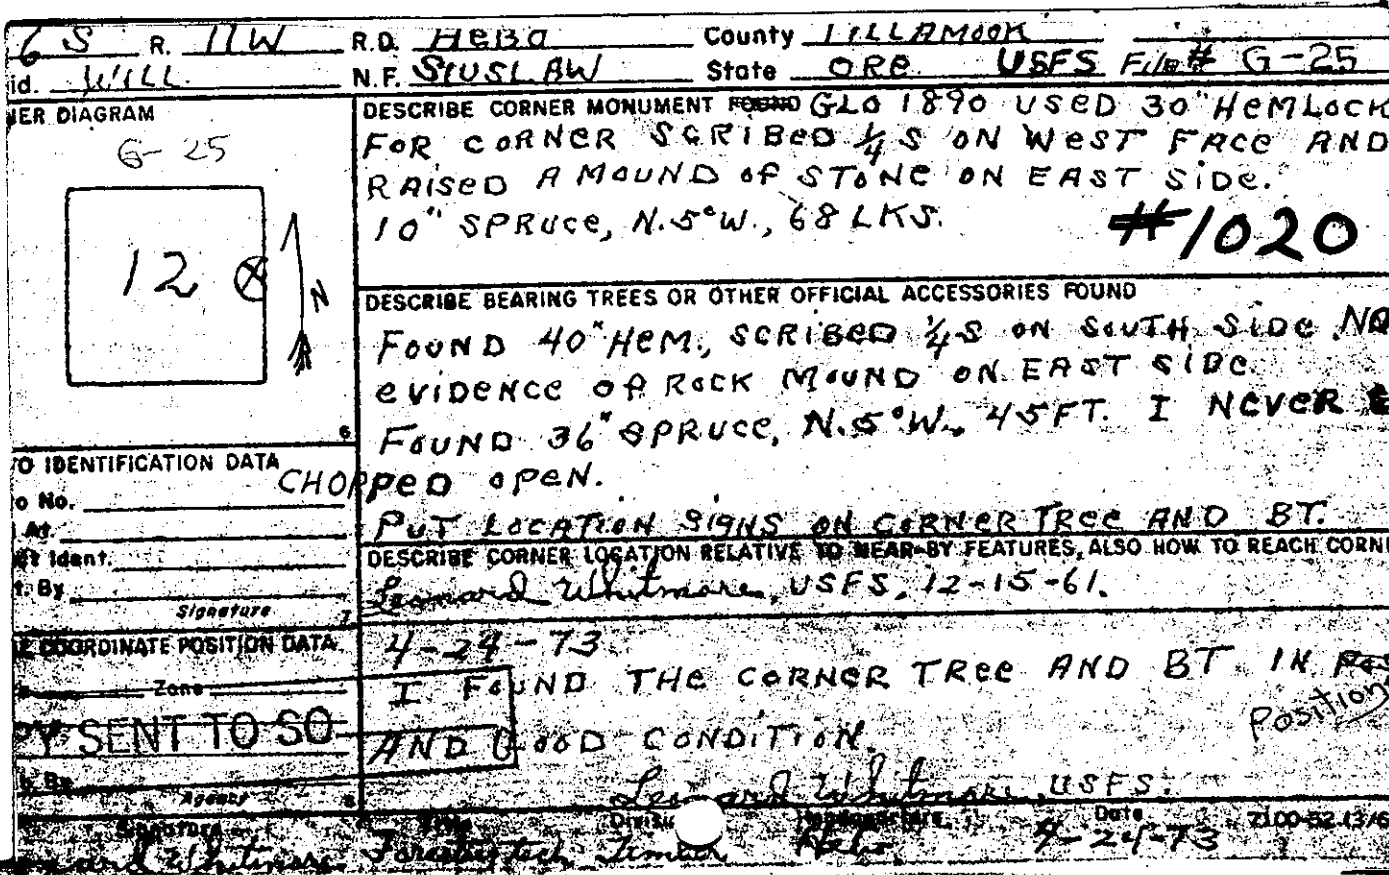 6 S R. 11W R.D. HEBO County TILLAMOOK
id. WILL. N.F. SIUSLAW State ORE. USFS File# G-25
NER DIAGRAM
G-25
12
N
6
DESCRIBE CORNER MONUMENT FOUND GLO 1890 USED 30" HEMLOCK
FOR CORNER SCRIBED 1/4 S ON WEST FACE AND
RAISED A MOUND OF STONE ON EAST SIDE.
10" SPRUCE, N.5°W., 68 LKS.
#1020
DESCRIBE BEARING TREES OR OTHER OFFICIAL ACCESSORIES FOUND
FOUND 40" HEM., SCRIBED 1/4 S ON SOUTH SIDE. NO
EVIDENCE OF ROCK MOUND ON EAST SIDE.
FOUND 36" SPRUCE, N.5°W., 45 FT. I NEVER
CHOPPED OPEN.
PUT LOCATION SIGNS ON CORNER TREE AND BT.
TO IDENTIFICATION DATA
o No.
At
Ident.
t. By
Signature
7
DESCRIBE CORNER LOCATION RELATIVE TO NEAR-BY FEATURES, ALSO HOW TO REACH CORNE
Leonard Whitmore, USFS, 12-15-61.
4-24-73
I FOUND THE CORNER TREE AND BT IN
Position
AND GOOD CONDITION.
Leonard Whitmore, USFS.
TE COORDINATE POSITION DATA
Zone
PY SENT TO SO
By
Agency
8
Signature Title Division Headquarters Date 7100-52 (3/6
Leonard Whitmore Forestry tech Timber Hebo 4-24-73